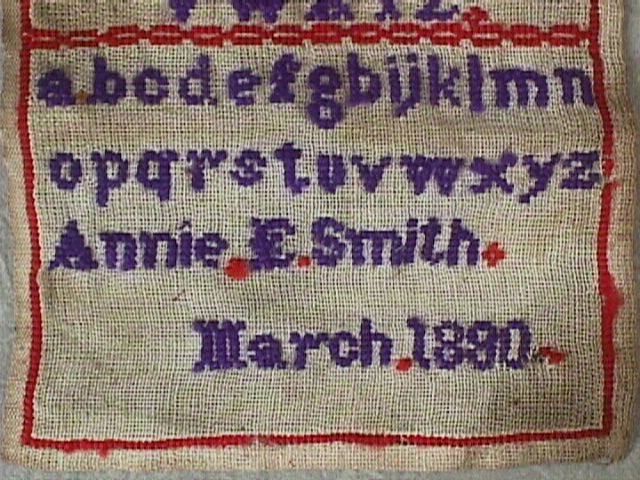 V W X Y Z.
a.bcdefghijklmn
opqrstuvwxyz
Annie.E.Smith.
March.1890.